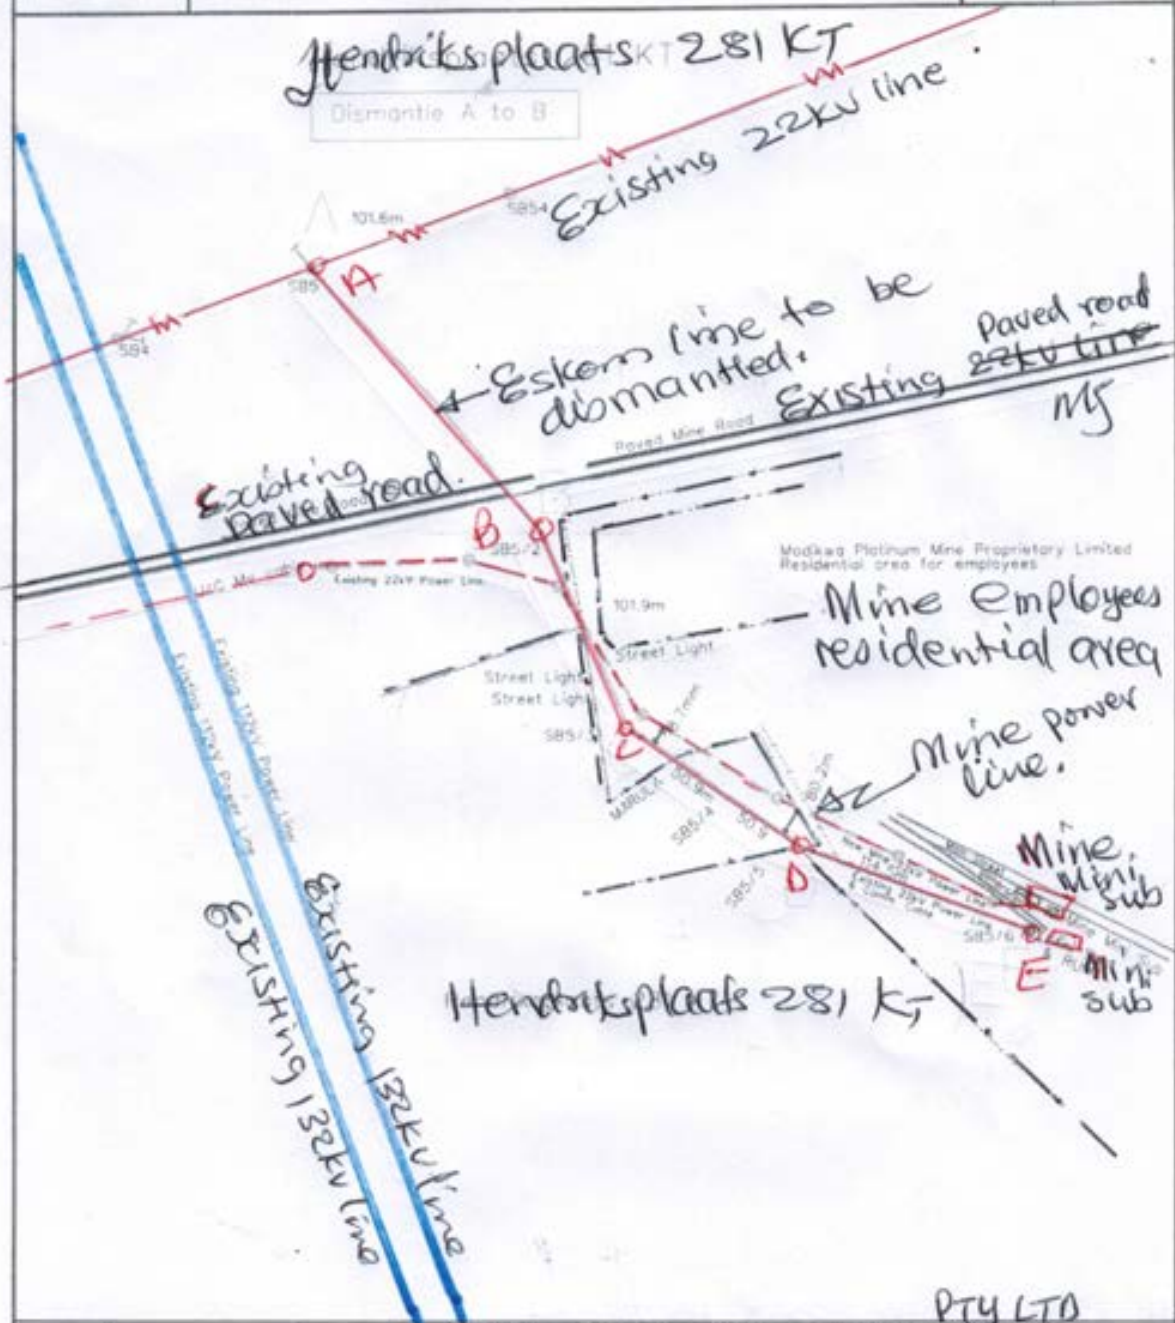 Hendriksplaats 281 KT
Dismantle A to B
Existing 22kv line
101.6m
SB54
SB5
A
SB4
Eskom line to be
dismantled.
Paved road
Existing 22kv line
MJ
Paved Mine Road
Existing
paved road.
B
SB5/2
Existing 22kV Power Line
Modikwa Platinum Mine Proprietary Limited
Residential area for employees
101.9m
Mine Employees
residential area
Street Light
Street Light
Street Light
SB5/3
C
Mine power
line.
MARULA
50.9m
50.9
80.2m
SB5/4
SB5/5
D
Existing 132kV Power Line
Existing 132kV Power Line
Existing 22kV Power Line
Mine
Mini
sub
SB5/6
E
Mini
sub
Existing 132kv line
Existing 132kv line
Hendriksplaats 281 KT
PTY LTD